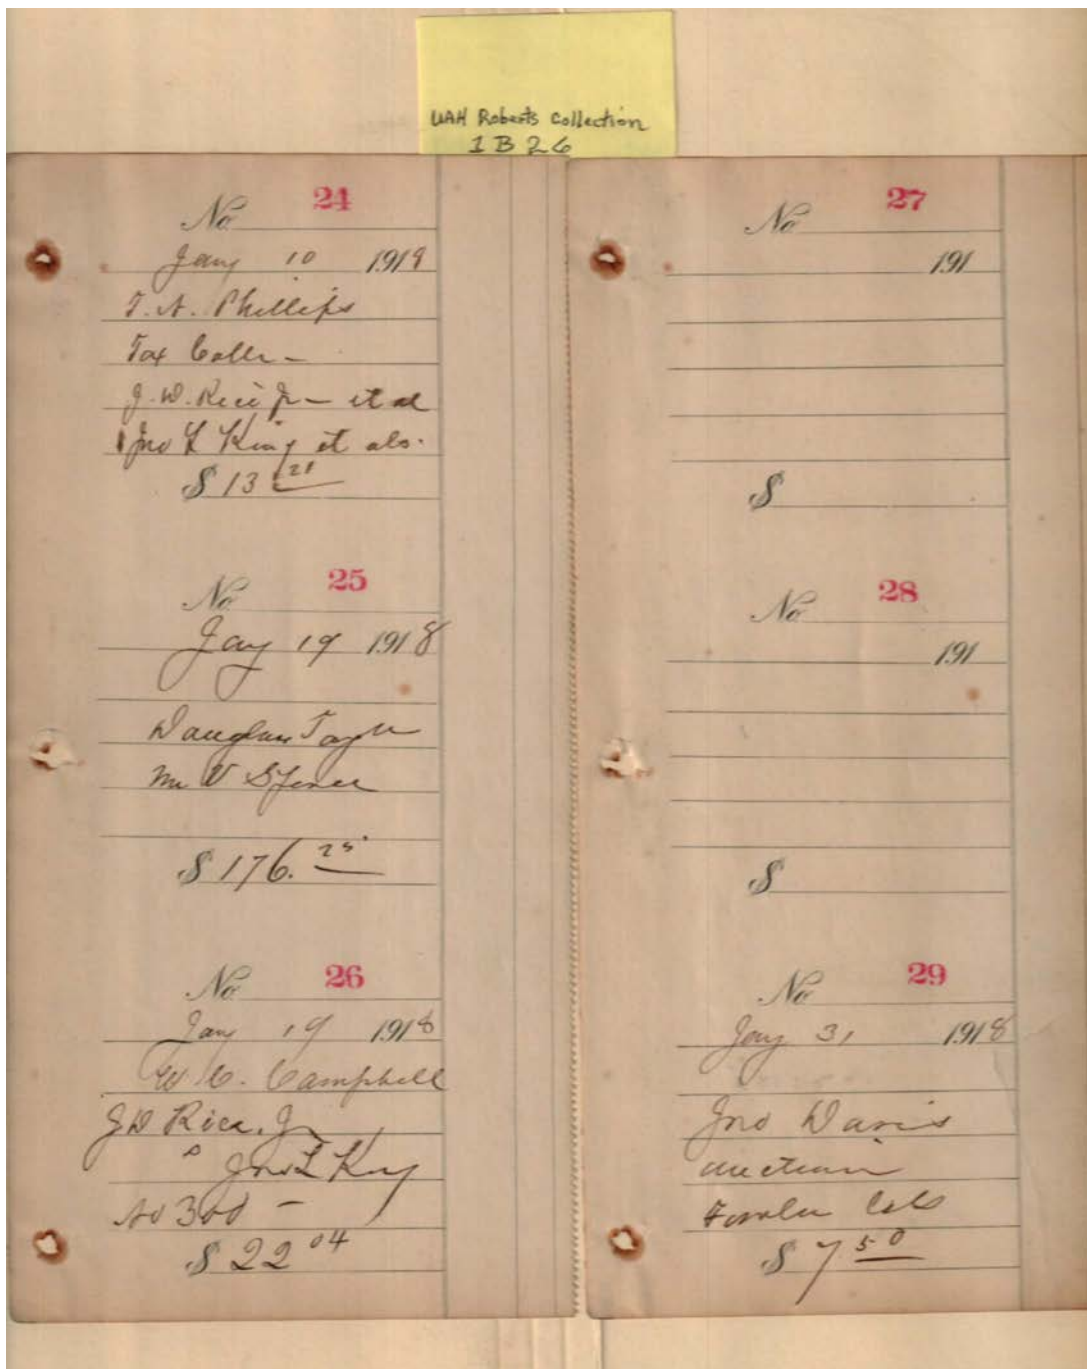 UAH Roberts Collection
1 B 26
No 24
Jany 10 1918
T. A. Phillips
Tax Collr -
J. W. Rice Jr - et al
Jno L King et als.
$ 13 21
No 25
Jany 19 1918
Douglass Taylor
$ 176. 25
No 26
Jany 19 1918
W. C. Campbell
J W Rice, Jr
Jno L King
No 300 -
$ 22 04
No 27
191
$
No 28
191
$
No 29
Jany 31 1918
Jno Davis
auction
Fowler
$ 7 50